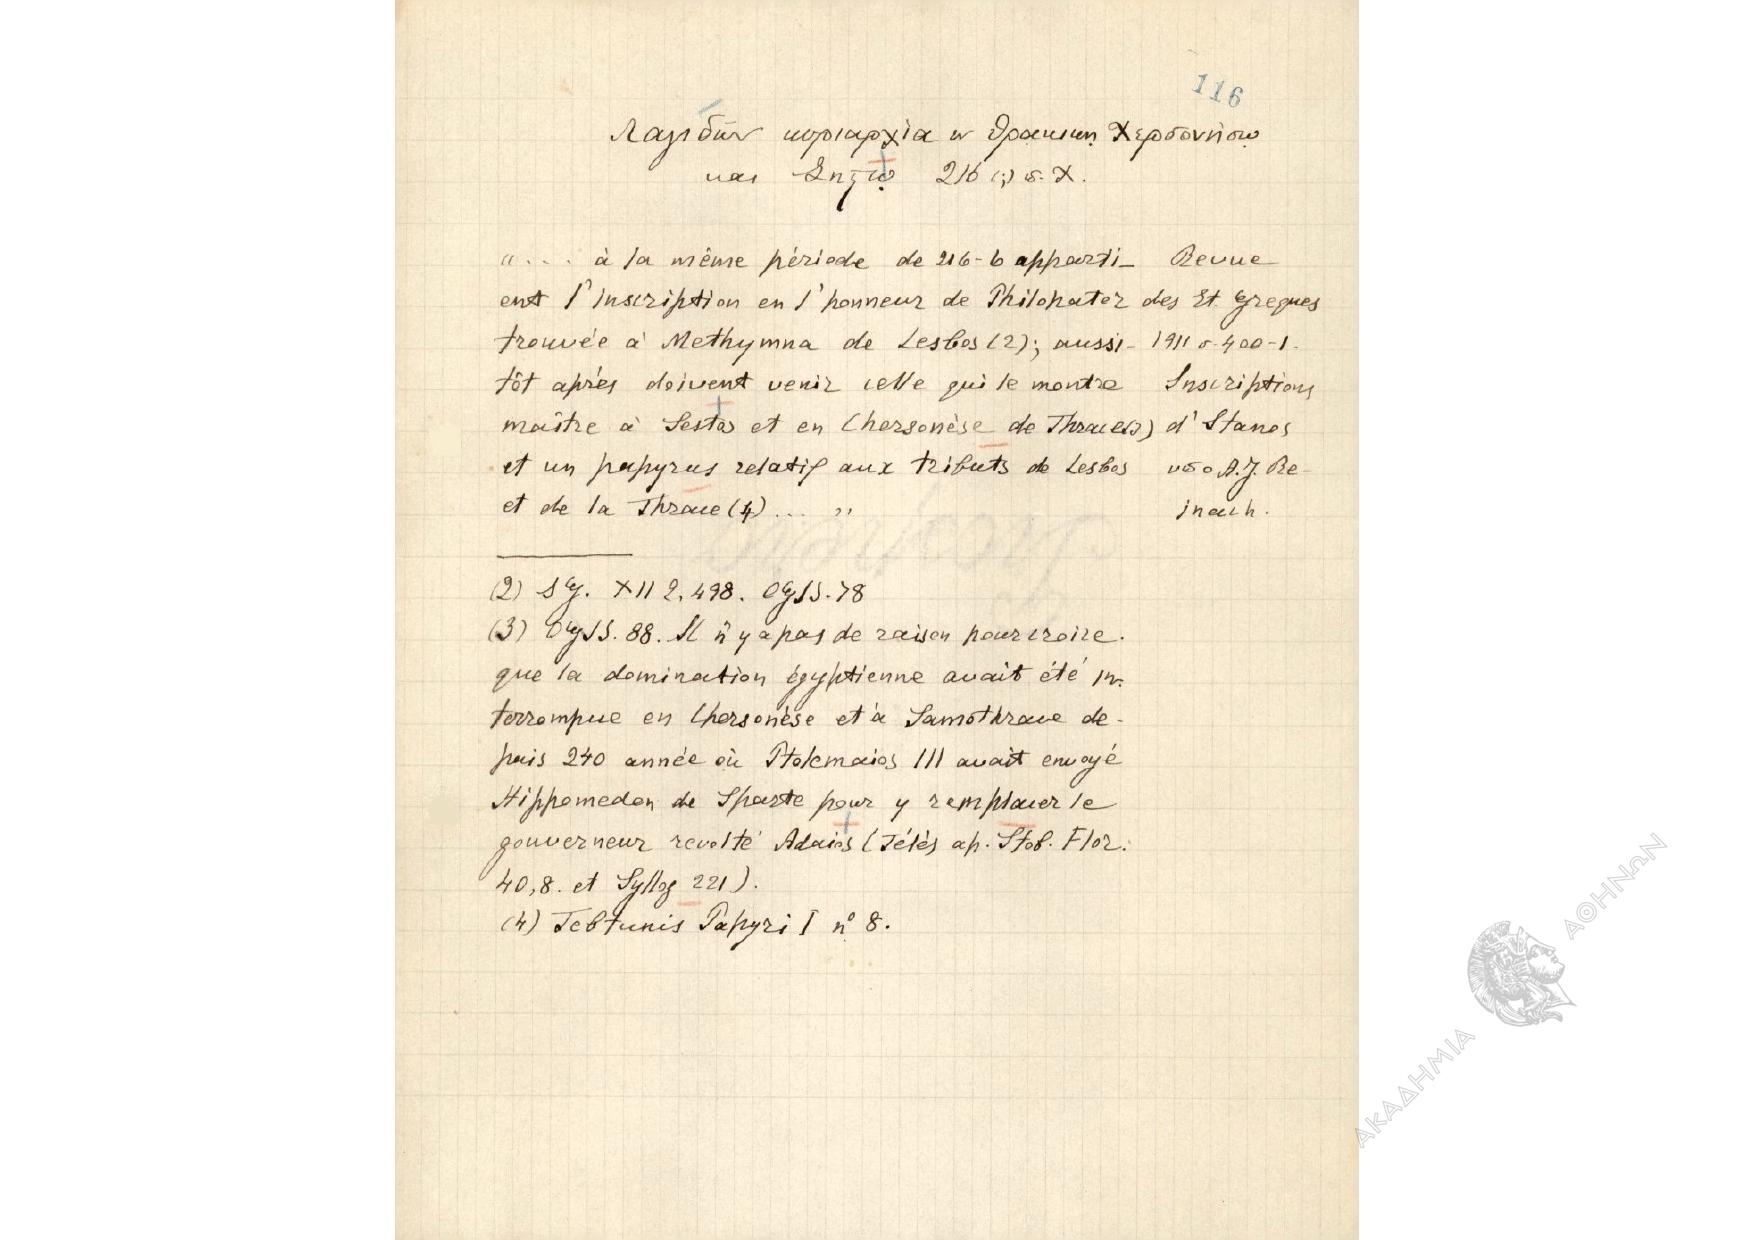 116
Λαγιδῶν κυριαρχία ἐν Θρακικῇ Χερσονήσῳ
και Σηστῷ 216 (;) π. Χ.
"... à la même période de 216-6 apparti-
ent l'inscription en l'honneur de Philopator
trouvée à Methymna de Lesbos (2); aussi-
tôt après doivent venir celle qui le montre
maître à Sestos et en Chersonèse de Thrace (3)
et un papyrus relatif aux tributs de Lesbos
et de la Thrace (4) ... "
Revue
des Et. Greques
1911 σ. 400-1.
Inscriptions
d'Itanos
υπο A.J. Re-
inach.
(2) IG. XII 2, 498. OGIS. 78
(3) OGIS. 88. Il n'y a pas de raison pour croire
que la domination égyptienne avait été in-
terrompue en Chersonèse et à Samothrace de-
puis 240 année où Ptolemaios III avait envoyé
Hippomedon de Sparte pour y remplacer le
gouverneur revolté Adaios (Télès ap. Stob. Flor.
40,8. et Syllog 221).
(4) Tebtunis Papyri I n° 8.
ΑΚΑΔΗΜΙΑ ΑΘΗΝΩΝ